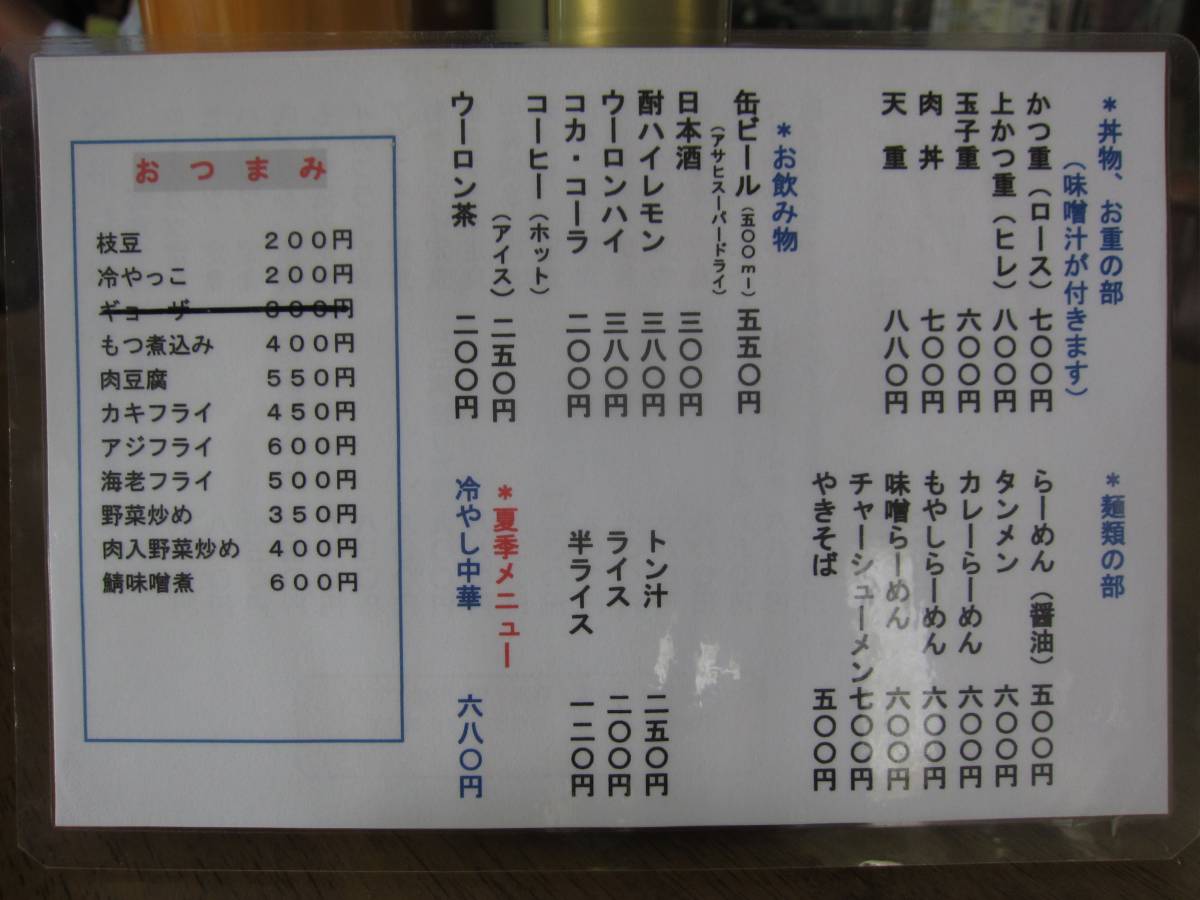 ＊丼物、お重の部
（味噌汁が付きます）
かつ重（ロース）　七〇〇円
上かつ重（ヒレ）　八〇〇円
玉子重　六〇〇円
肉丼　七〇〇円
天重　八八〇円
＊麺類の部
らーめん（醤油）　五〇〇円
タンメン　六〇〇円
カレーらーめん　六〇〇円
もやしらーめん　六〇〇円
味噌らーめん　六〇〇円
チャーシューメン　七〇〇円
やきそば　五〇〇円
＊お飲み物
缶ビール（五〇〇ｍｌ）　五五〇円
（アサヒスーパードライ）
日本酒　三〇〇円
酎ハイレモン　三八〇円
ウーロンハイ　三八〇円
コカ・コーラ　二〇〇円
コーヒー（ホット）
（アイス）　二五〇円
ウーロン茶　二〇〇円
トン汁　二五〇円
ライス　二〇〇円
半ライス　一二〇円
＊夏季メニュー
冷やし中華　六八〇円
おつまみ
枝豆　２００円
冷やっこ　２００円
ギョーザ　３００円
もつ煮込み　４００円
肉豆腐　５５０円
カキフライ　４５０円
アジフライ　６００円
海老フライ　５００円
野菜炒め　３５０円
肉入野菜炒め　４００円
鯖味噌煮　６００円